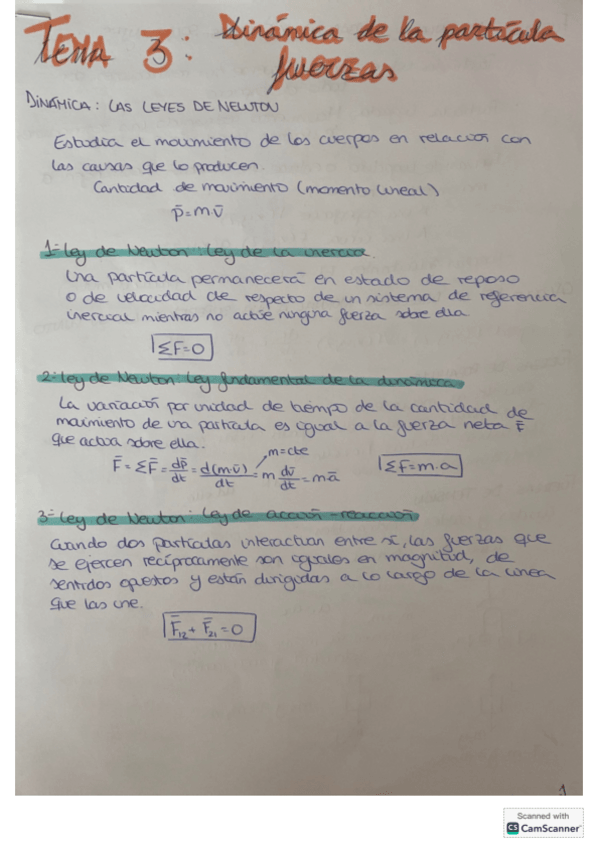 Tema 3: Dinámica de la partícula
fuerzas
DINÁMICA: LAS LEYES DE NEWTON
Estudia el movimiento de los cuerpos en relación con
las causas que lo producen.
Cantidad de movimiento (momento lineal)
p̄=m·v̄
1ª Ley de Newton: Ley de la inercia.
Una partícula permanecerá en estado de reposo
o de velocidad de respecto de un sistema de referencia
inercial mientras no actúe ninguna fuerza sobre ella
ΣF=0
2ª Ley de Newton: Ley fundamental de la dinámica
La variación por unidad de tiempo de la cantidad de
movimiento de una partícula es igual a la fuerza neta F̄
que actúa sobre ella.
F̄ = ΣF̄ = dp̄/dt = d(m·v̄)/dt = m dv̄/dt = mā m=cte ΣF=m·a
3ª Ley de Newton: Ley de acción-reacción
Cuando dos partículas interactúan entre sí, las fuerzas que
se ejercen recíprocamente son iguales en magnitud, de
sentidos opuestos y están dirigidas a lo largo de la línea
que las une.
F̄₁₂ + F̄₂₁ = 0
1
Scanned with
CS CamScanner